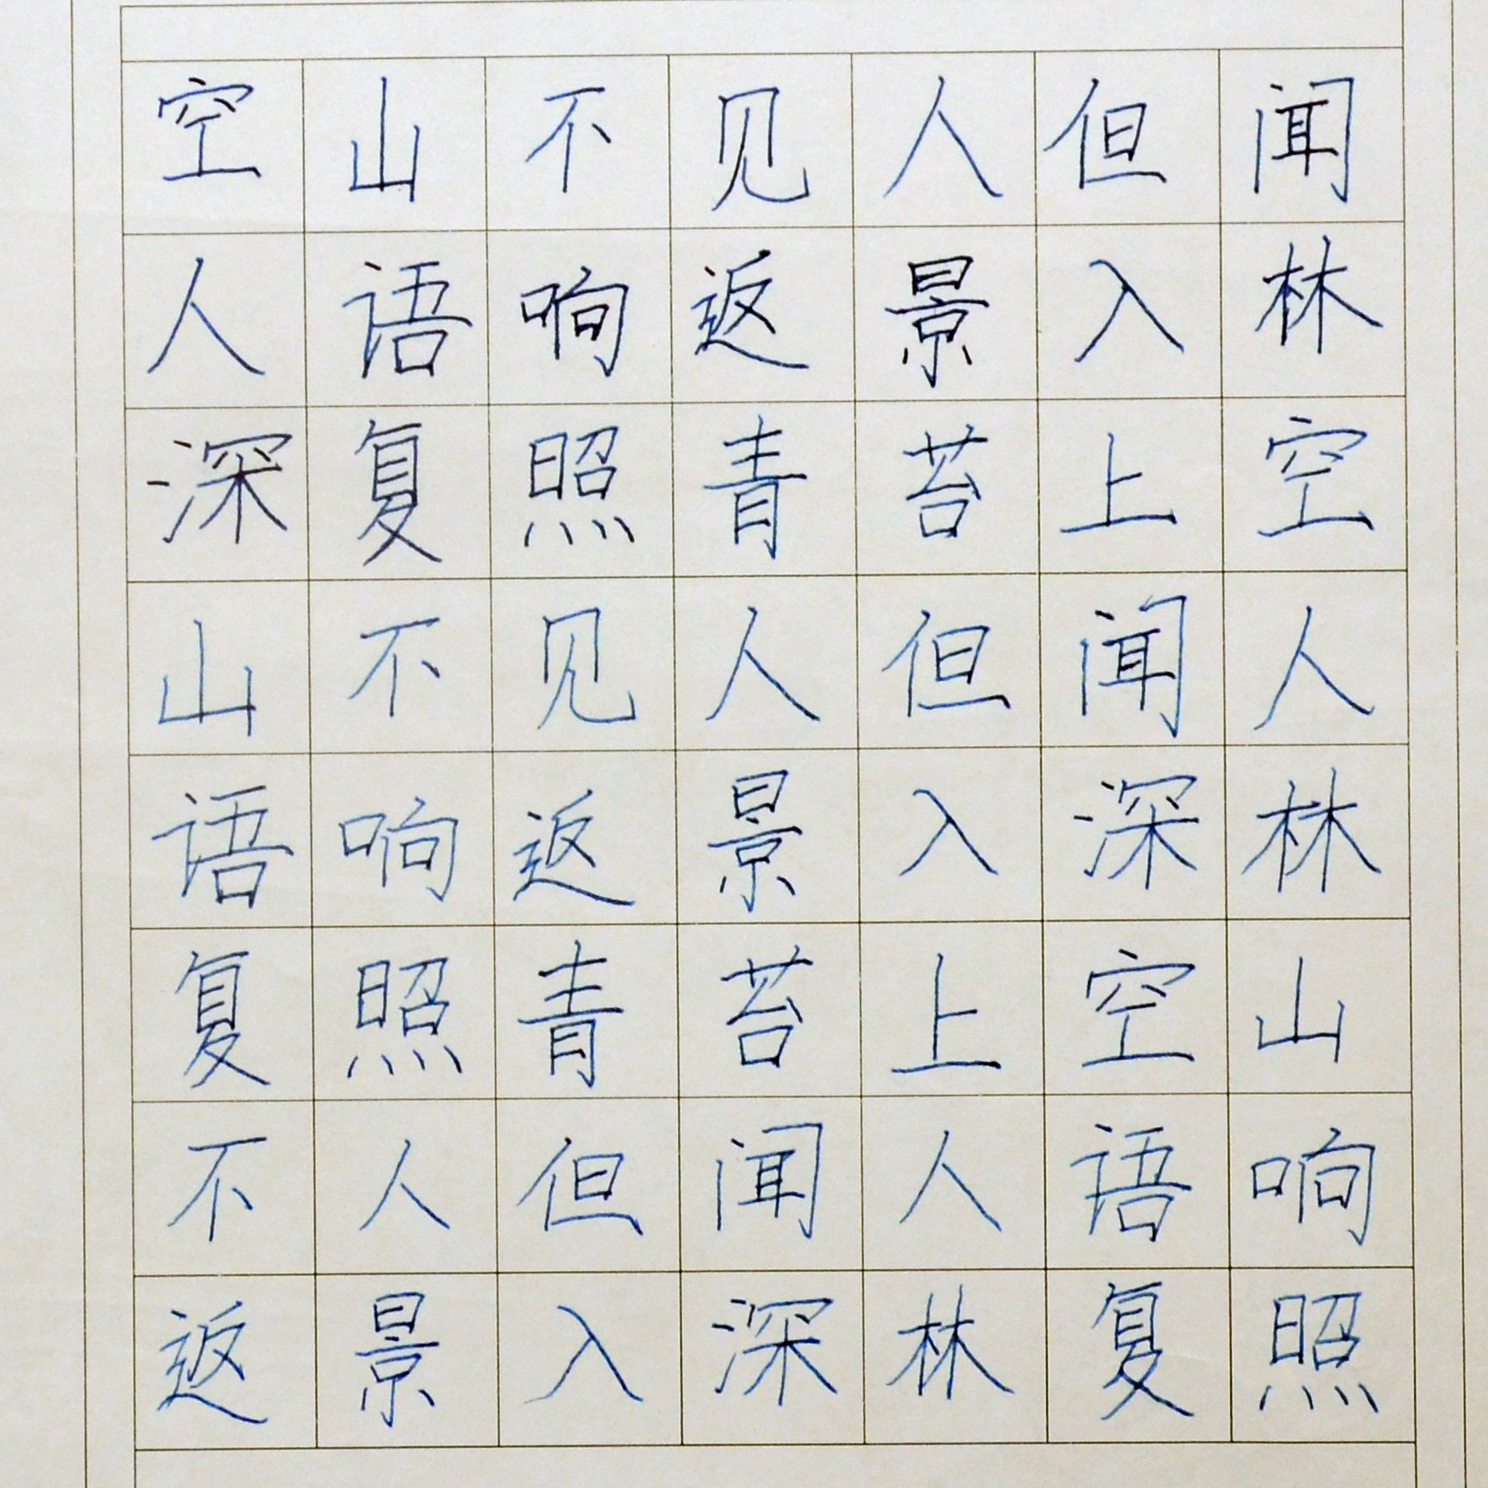 空山不见人但闻
人语响返景入林
深复照青苔上空
山不见人但闻人
语响返景入深林
复照青苔上空山
不人但闻人语响
返景入深林复照